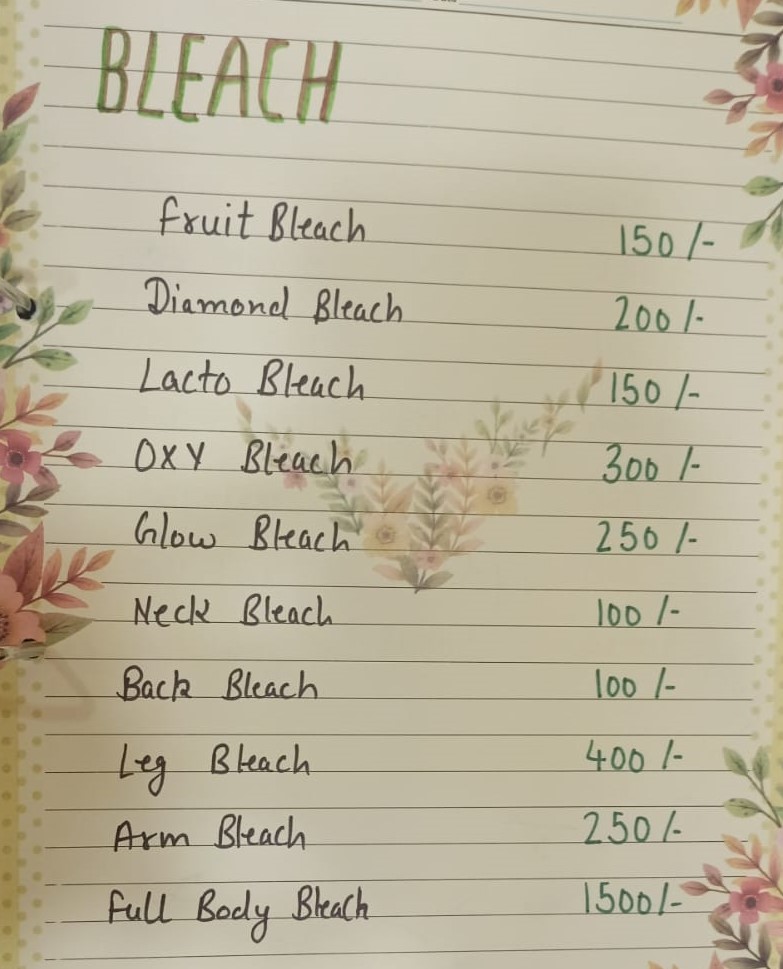 BLEACH
Fruit Bleach 150/-
Diamond Bleach 200/-
Lacto Bleach 150/-
OXY Bleach 300/-
Glow Bleach 250/-
Neck Bleach 100/-
Back Bleach 100/-
Leg Bleach 400/-
Arm Bleach 250/-
Full Body Bleach 1500/-